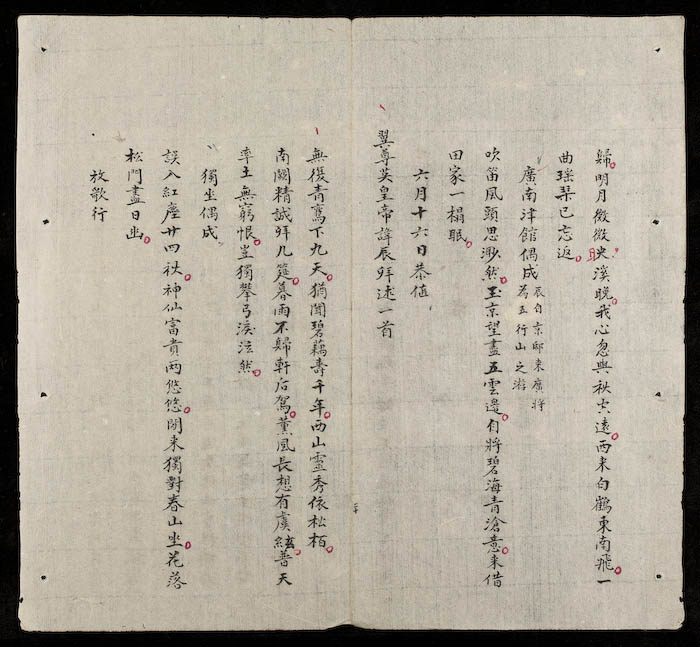 歸明月微微映溪晚我心忽與秋雲遠西來白鶴東南飛一
曲瑤琴已忘返
廣南津館偶成辰自京邸來廣將為五行山之游
吹笛風頭思渺然玉京望盡五雲邊自將碧海青滄意來借
田家一榻眠
六月十六日恭值
翼尊英皇帝諱辰拜述一首
無復青鸞下九天猶聞碧藕壽千年西山靈秀依松栢
南闕精誠拜几筵暮雨不歸軒后駕薰風長想有虞絃普天
率土無窮恨豈獨攀弓淚泫然
獨坐偶成
誤入紅塵廿四秋神仙富貴兩悠悠閒來獨對春山坐花落
松門盡日幽
放歌行